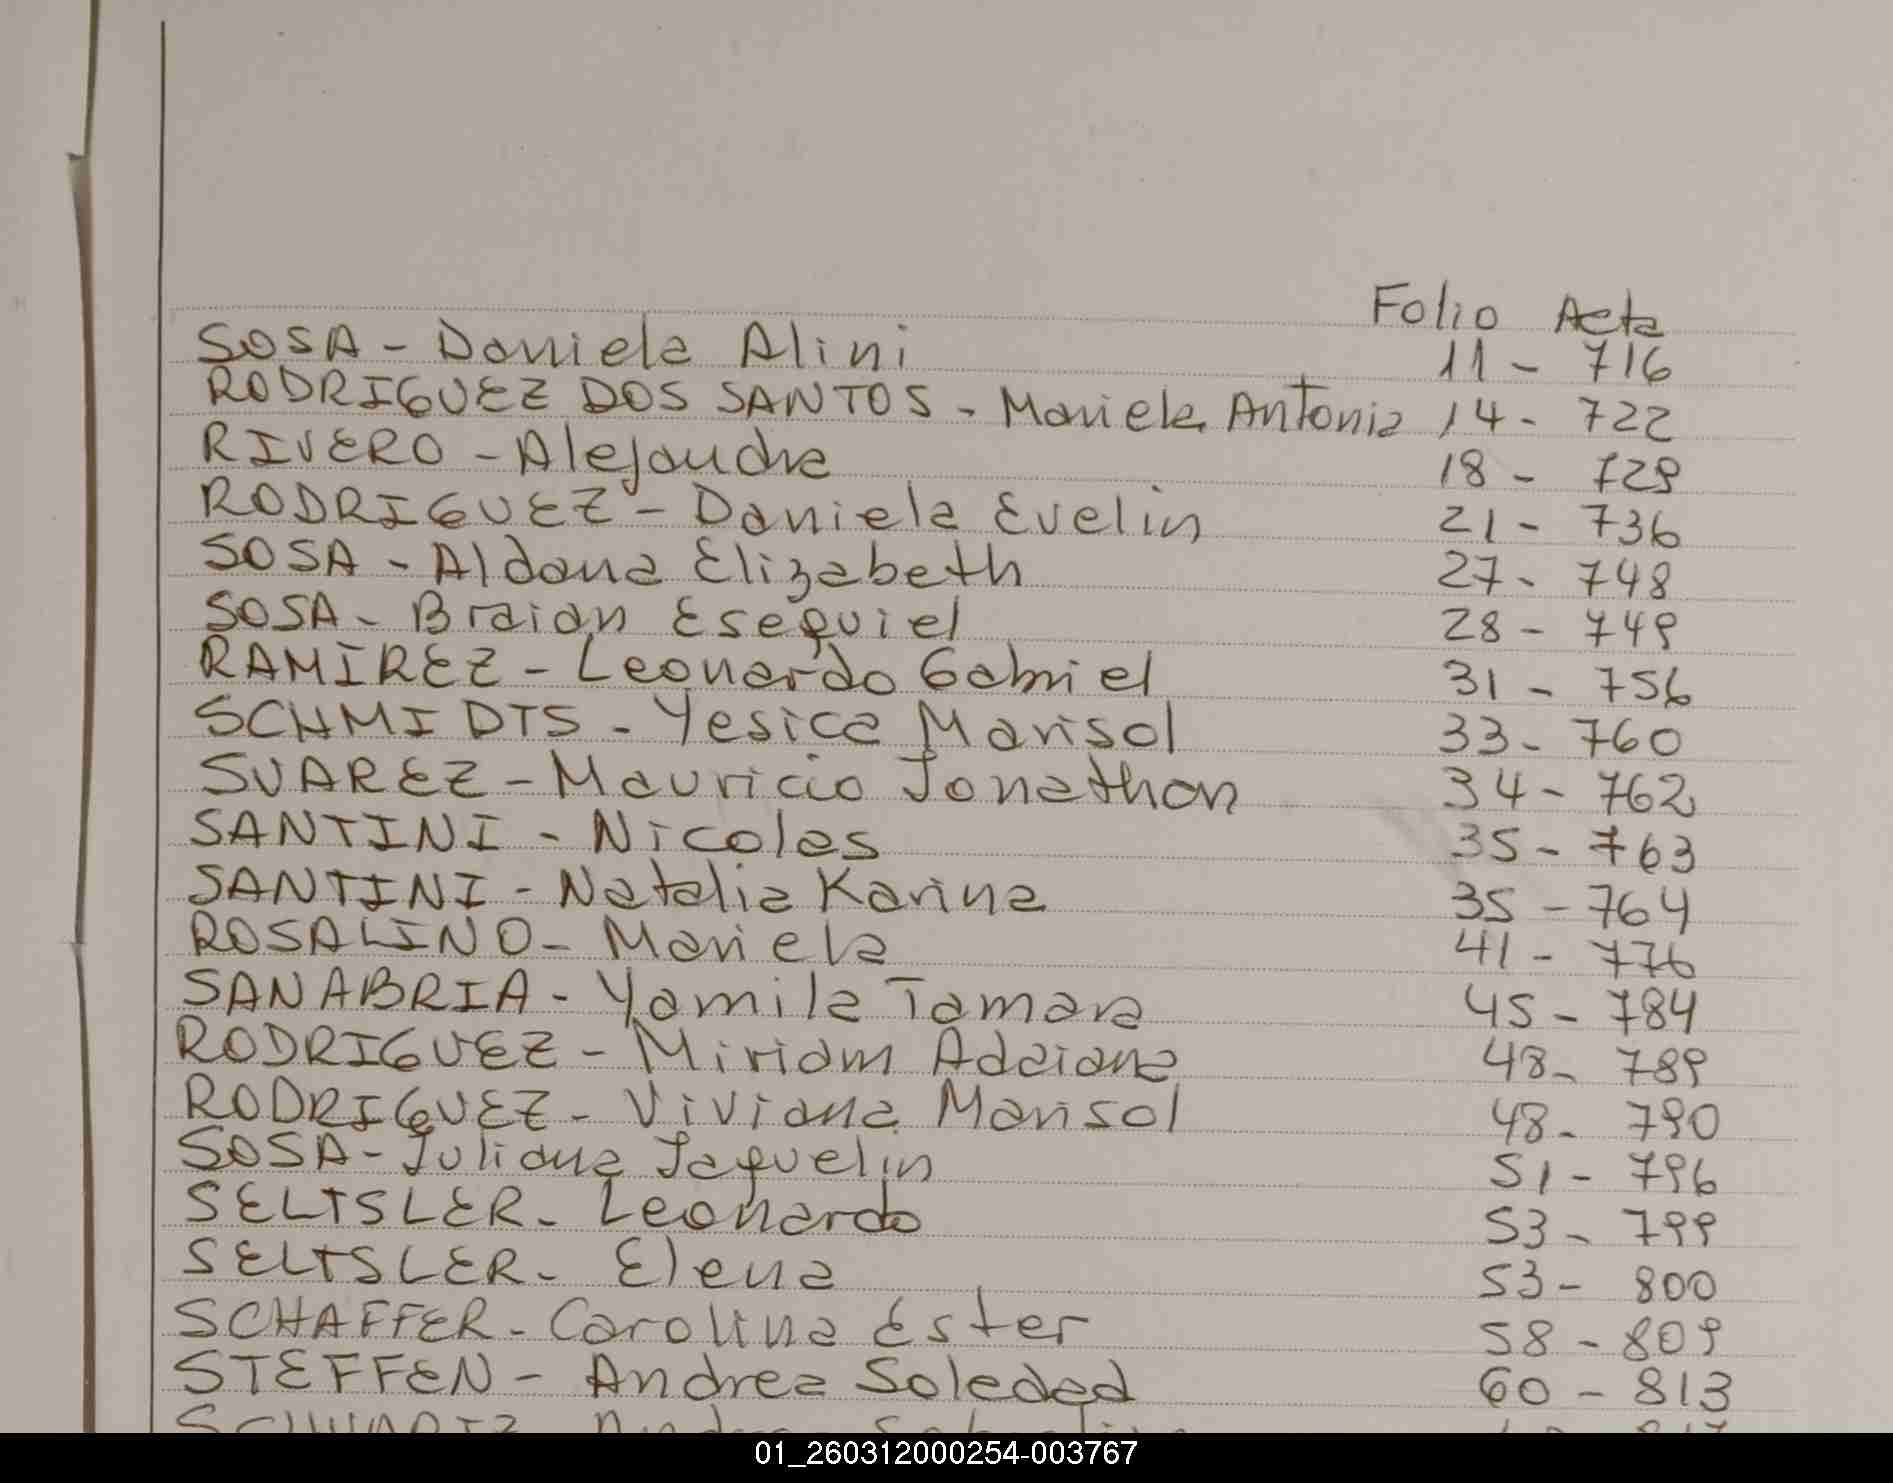 Folio Acta
SOSA - Daniela Alini 11 - 716
RODRIGUEZ DOS SANTOS - Mariela Antonia 14 - 722
RIVERO - Alejandra 18 - 729
RODRIGUEZ - Daniela Evelin 21 - 736
SOSA - Aldana Elizabeth 27 - 748
SOSA - Braian Esequiel 28 - 749
RAMÍREZ - Leonardo Gabriel 31 - 756
SCHMIDTS - Yesica Marisol 33 - 760
SUAREZ - Mauricio Jonathan 34 - 762
SANTINI - Nicolas 35 - 763
SANTINI - Natalia Karina 35 - 764
ROSALINO - Mariela 41 - 776
SANABRIA - Yamila Tamara 45 - 784
RODRIGUEZ - Miriam Adriana 48 - 789
RODRIGUEZ - Viviana Marisol 48 - 790
SOSA - Juliana Jaquelin 51 - 796
SELTSLER - Leonardo 53 - 799
SELTSLER - Elena 53 - 800
SCHAFFER - Carolina Ester 58 - 809
STEFFEN - Andrea Soledad 60 - 813
01_260312000254-003767